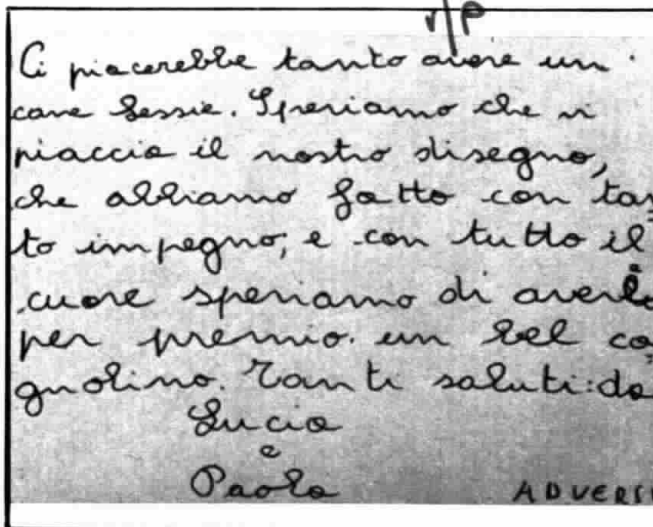 r/p
Ci piacerebbe tanto avere un
cane Lessie. Speriamo che vi
piaccia il nostro disegno,
che abbiamo fatto con tan
to impegno, e con tutto il
cuore speriamo di averlo
per premio. un bel ca
gnolino. Tanti saluti: da
Lucia
e
Paola
ADVERSI